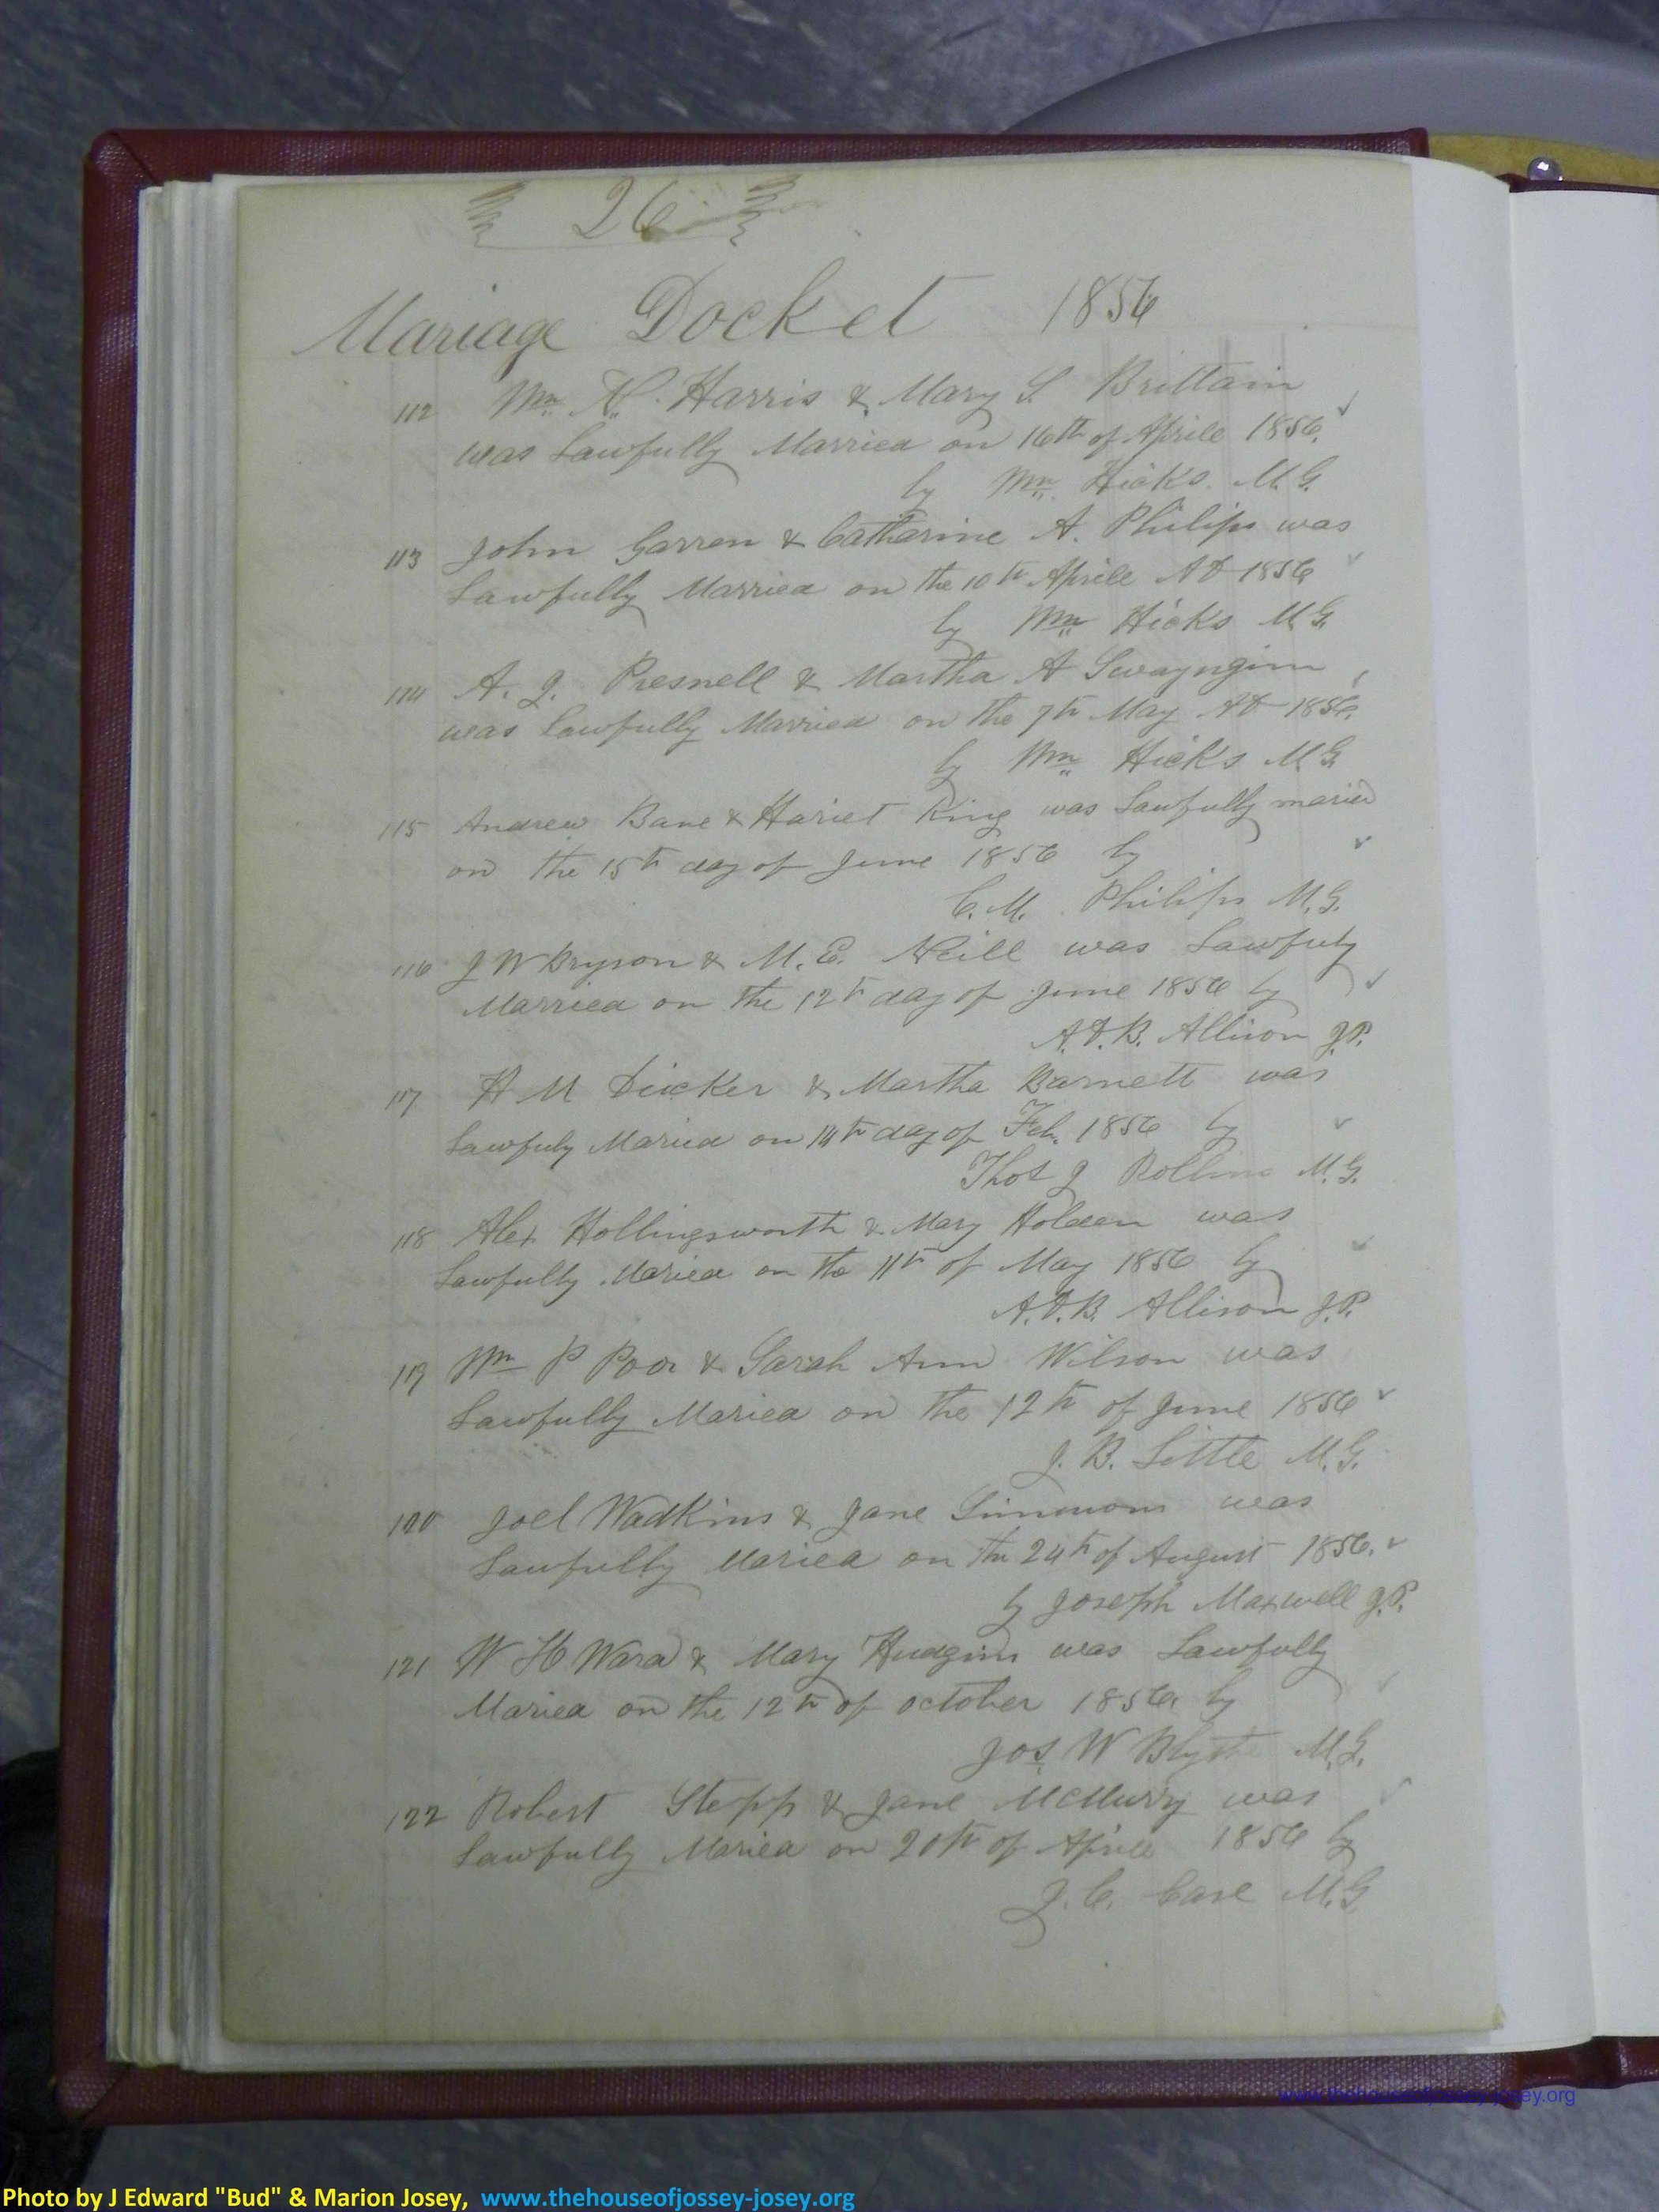 26
Mariage Docket 1856
112 Wm. H. Harris & Mary S. Brittain
was Lawfully Married on 16th of Aprile 1856.
by Wm. Hicks. M.G.
113 John Garren & Catharine A. Philips was
Lawfully Married on the 10th Aprile AD 1856
by Wm Hicks M.G.
114 A. J. Presnell & Martha A Swayngim
was Lawfully Married on the 7th May AD 1856.
by Wm Hicks M.G.
115 Andrew Bane & Hariet King was Lawfully maried
on the 15th day of June 1856 by
C.M. Philips M.G.
116 J W Bryson & M.E. Neill was Lawfuly
Married on the 12th day of June 1856 by
A.D.B. Allison J.P.
117 H M & Martha Barnett was
Lawfuly Maried on 14th day of Feb. 1856 by
Thos J Rollins M.G.
118 Alex Hollingsworth & Mary Holden was
Lawfully Maried on the 11th of May 1856 by
A.D.B. Allison J.P.
119 Wm P Poor & Sarah Ann Wilson was
Lawfully Maried on the 12th of June 1856
J.B. Little M.G.
120 Joel Wadkins & Jane Simmons was
Lawfully Maried on the 24th of August 1856.
by Joseph Maxwell J.P.
121 W H Ward & Mary Hudgins was Lawfully
Maried on the 12th of october 1856 by
Jos. W Blythe M.G.
122 Robert Stepp & Jane McMurry was
Lawfully Maried on 20th of Aprile 1856 by
J.C. Case M.G
www.thehouseofjossey-josey.org
Photo by J Edward "Bud" & Marion Josey, www.thehouseofjossey-josey.org